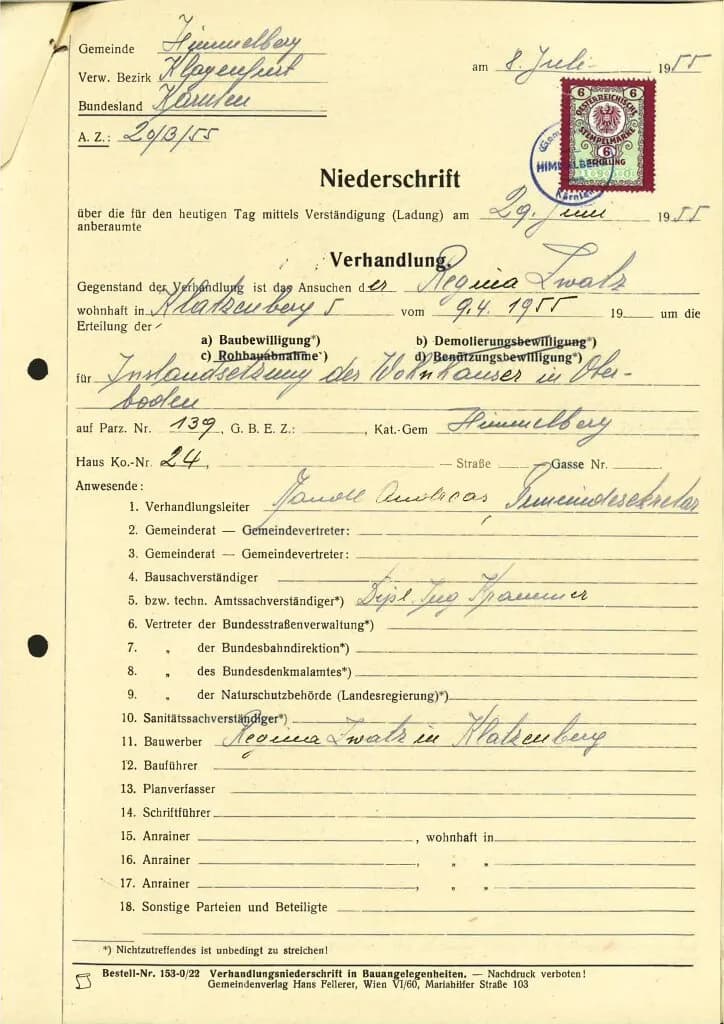 Gemeinde Himmelberg
Verw. Bezirk Klagenfurt
Bundesland Kärnten
A. Z.: 20/3/55
am 8. Juli 1955
6 6
ÖSTERREICHISCHE
STEMPELMARKE
6
SCHILLING
HIMMELBERG
Kärnten
Niederschrift
über die für den heutigen Tag mittels Verständigung (Ladung) am 29. Juni 1955
anberaumte
Verhandlung.
Gegenstand der Verhandlung ist das Ansuchen der Regina Zwatz
wohnhaft in Klatzenberg 5 vom 9.4.1955 19 um die
Erteilung der
a) Baubewilligung*) b) Demolierungsbewilligung*)
c) Rohbauabnahme*) d) Benützungsbewilligung*)
für Instandsetzung der Wohnhäuser in Ober-
boden
auf Parz. Nr. 139, G. B. E. Z.: , Kat.-Gem Himmelberg
Haus Ko.-Nr. 24, — Straße Gasse Nr.
Anwesende:
1. Verhandlungsleiter Andreas Gemeindesekretär
2. Gemeinderat — Gemeindevertreter:
3. Gemeinderat — Gemeindevertreter:
4. Bausachverständiger
5. bzw. techn. Amtssachverständiger*) Dipl. Ing Krammer
6. Vertreter der Bundesstraßenverwaltung*)
7. „ der Bundesbahndirektion*)
8. „ des Bundesdenkmalamtes*)
9. „ der Naturschutzbehörde (Landesregierung)*)
10. Sanitätssachverständiger*)
11. Bauwerber Regina Zwatz in Klatzenberg
12. Bauführer
13. Planverfasser
14. Schriftführer
15. Anrainer , wohnhaft in
16. Anrainer , „ „
17. Anrainer , „ „
18. Sonstige Parteien und Beteiligte
*) Nichtzutreffendes ist unbedingt zu streichen!
Bestell-Nr. 153-0/22 Verhandlungsniederschrift in Bauangelegenheiten. — Nachdruck verboten!
Gemeindenverlag Hans Fellerer, Wien VI/60, Mariahilfer Straße 103